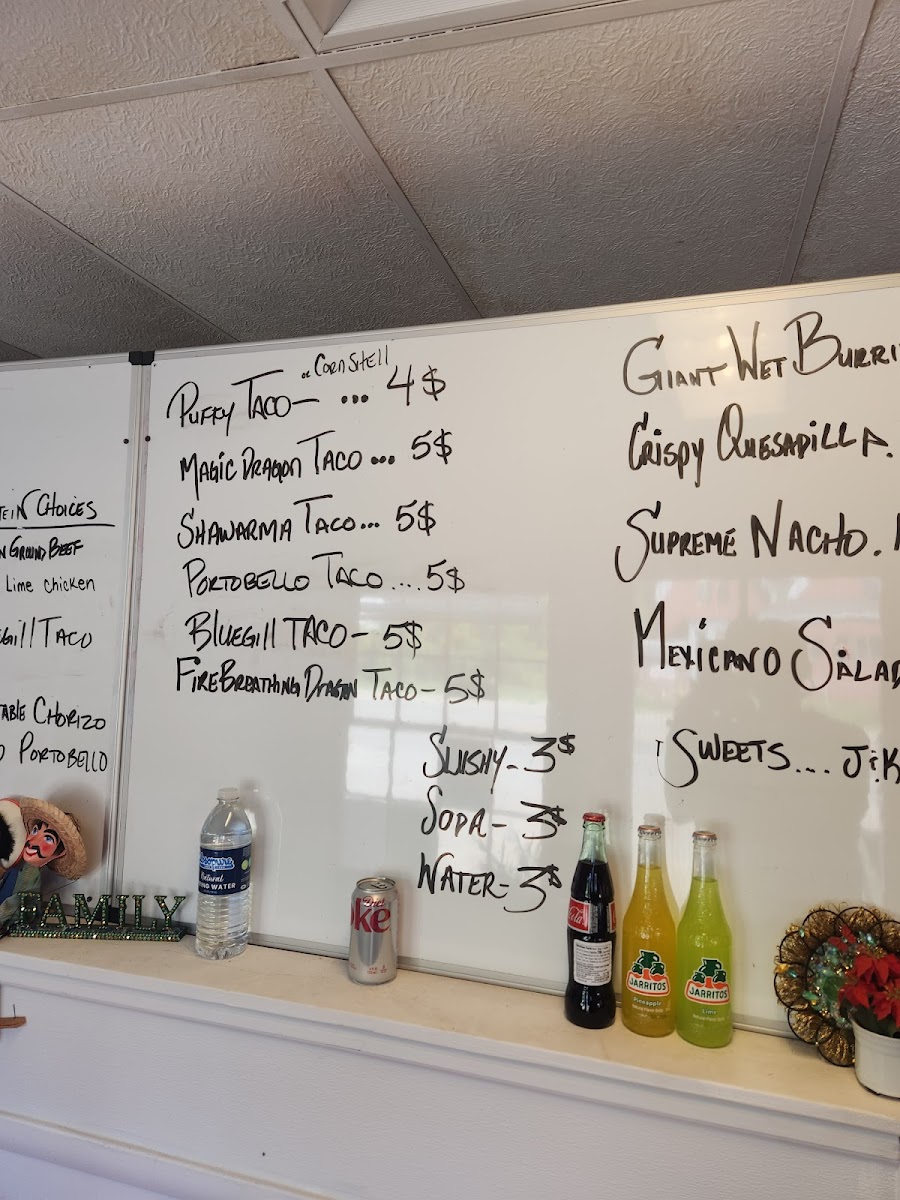 TEIN CHOICES
N GROUND BEEF
Lime chicken
GILL TACO
TABLE CHORIZO
PORTOBELLO
or CORN SHELL
PUFFY TACO— ... 4$
MAGIC DRAGON TACO... 5$
SHAWARMA TACO... 5$
PORTOBELLO TACO....5$
BLUEGILL TACO- 5$
FIRE BREATHING DRAGON TACO- 5$
SLUSHY- 3$
SODA- 3$
WATER- 3$
GIANT WET BURRI
CRISPY QUESADILLA.
SUPREME NACHO.
MEXICANO SALAD
SWEETS.... J&K
FAMILY
Natural
NG WATER
Diet
oke
Cola
JARRITOS
Pineapple
JARRITOS
Lime